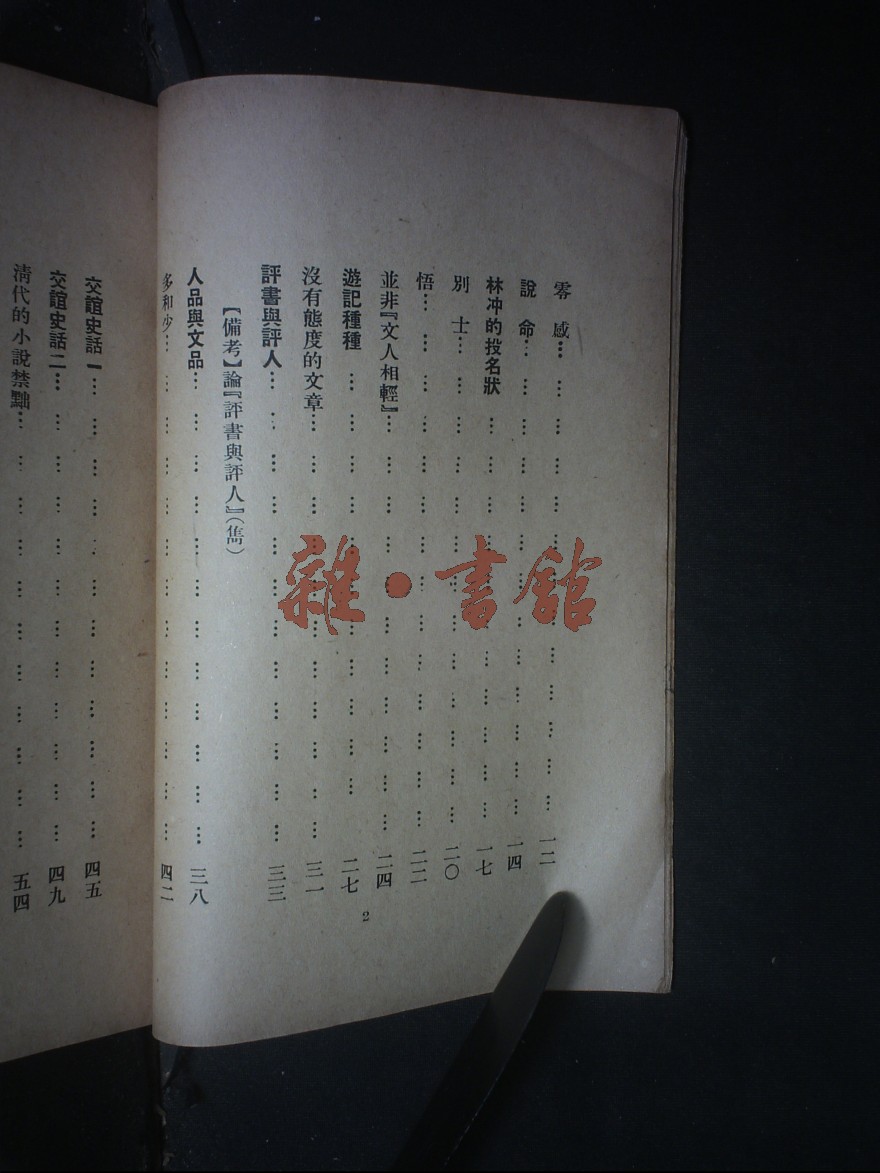 零感…………………………………一二
說命…………………………………一四
林冲的投名狀…………………………一七
別士…………………………………二〇
悟……………………………………二二
並非『文人相輕』………………………二四
遊記種種………………………………二七
沒有態度的文章…………………………三一
評書與評人……………………………三三
【備考】論『評書與評人』(雋)
人品與文品……………………………三八
多和少………………………………四二
2
交誼史話一……………………………四五
交誼史話二……………………………四九
清代的小說禁黜…………………………五四
雜·書館